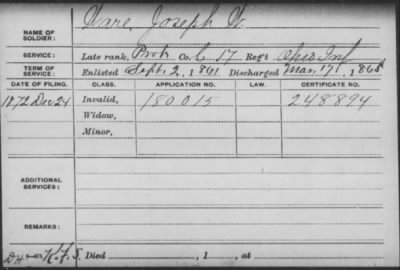 NAME OF SOLDIER: Ware, Joseph W.
SERVICE: Late rank, Prvt Co. C 17 Reg't Ohio Inf
TERM OF SERVICE: Enlisted Sept. 2, 1861 Discharged Mar. 17, 1865
DATE OF FILING. CLASS. APPLICATION NO. LAW. CERTIFICATE NO.
1872 Dec 24 Invalid, 180.015 248894
Widow,
Minor,
ADDITIONAL SERVICES:
REMARKS:
Died , 1 , at